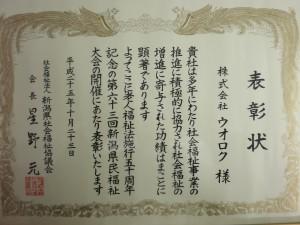 表彰状
株式会社 ウオロク 様
貴社は多年にわたり社会福祉事業の
推進に積極的に協力され社会福祉の
増進に寄与された功績はまことに
顕著であります
よってここに老人福祉法施行五十周年
記念の第六十三回新潟県民福祉
大会の開催にあたり表彰いたします
平成二十五年十月二十三日
社会福祉法人 新潟県社会福祉協議会
会長 星野 元